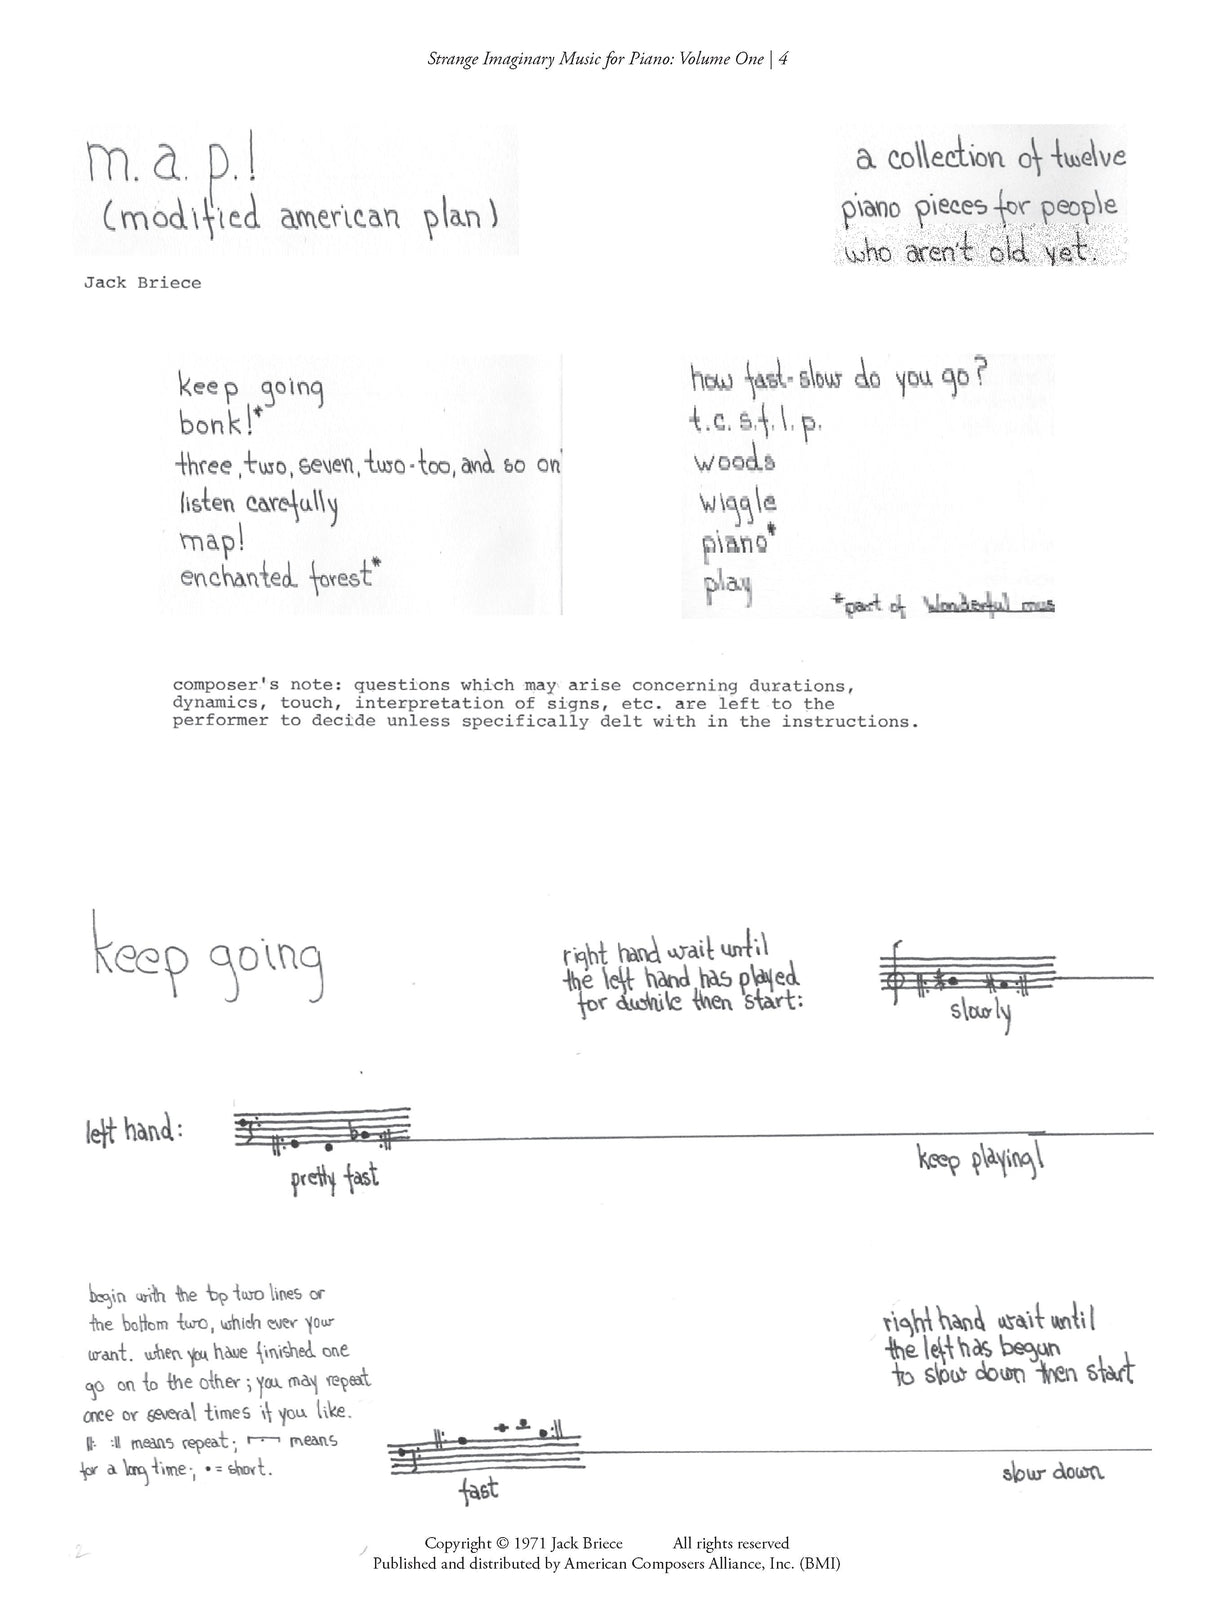 Strange Imaginary Music for Piano: Volume One | 4
m. a. p.!
(modified american plan)
Jack Briece
a collection of twelve
piano pieces for people
who aren't old yet.
keep going
bonk!*
three, two, seven, two-too, and so on
listen carefully
map!
enchanted forest*
how fast-slow do you go?
t.c. s.f. l. p.
woods
wiggle
piano*
play
*part of Wonderful mus
composer's note: questions which may arise concerning durations,
dynamics, touch, interpretation of signs, etc. are left to the
performer to decide unless specifically delt with in the instructions.
keep going
right hand wait until
the left hand has played
for awhile then start:
slowly
left hand:
pretty fast
keep playing!
begin with the top two lines or
the bottom two, which ever your
want. when you have finished one
go on to the other; you may repeat
once or several times if you like.
means repeat; means
for a long time; • = short.
right hand wait until
the left has begun
to slow down then start
fast
slow down
2
Copyright © 1971 Jack Briece All rights reserved
Published and distributed by American Composers Alliance, Inc. (BMI)